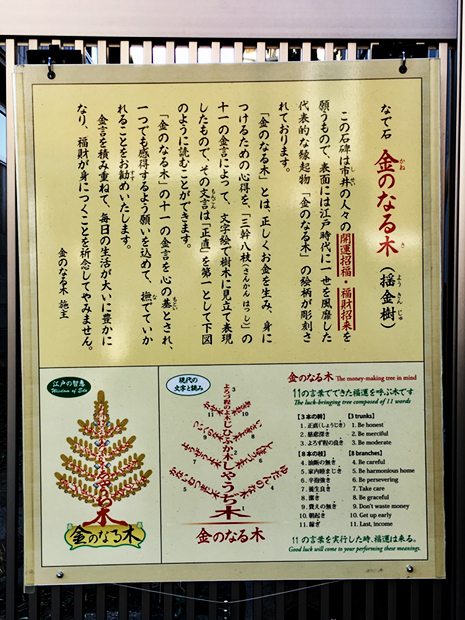 なで石 金のなる木 (揺金樹)
かね き
ようきんじゅ
この石碑は市井の人々の開運招福・福財招来を
しせい
願うもので、表面には江戸時代に一世を風靡した
代表的な縁起物「金のなる木」の絵柄が彫刻さ
れております。
「金のなる木」とは、正しくお金を生み、身に
つけるための心得を、「三幹八枝(さんかん はっし)」の
十一の金言によって、文字絵で樹木に見立て表現
したもので、その文言は「正直」を第一として下図
もんごん
のように読むことができます。
「金のなる木」の十一の金言を心の基とされ、
もとい
一つでも感得するよう願いを込めて、撫でていか
れることをお勧めいたします。
すす
金言を積み重ねて、毎日の生活が大いに豊かに
なり、福財が身につくことを祈念してやみません。
金のなる木 施主
江戸の智恵
Wisdom of Edo
金のなる木
現代の
文字と読み
よろづ程のよ木
じひふか木
しやうぢ木
金のなる木
金のなる木 The money-making tree in mind
11の言葉でできた福運を呼ぶ木です
The luck-bringing tree composed of 11 words
【3本の幹】 [3 trunks]
1. 正直(しょうじき) 1. Be honest
2. 慈悲深き 2. Be merciful
3. よろず程の良き 3. Be moderate
【8本の枝】 [8 branches]
4. 油断の無き 4. Be careful
5. 家内睦まじき 5. Be harmonious home
6. 辛抱強き 6. Be persevering
7. 養生良き 7. Take care
8. 潔き 8. Be graceful
9. 費えの無き 9. Don't waste money
10. 朝起き 10. Get up early
11. 稼ぎ 11. Last, income
11の言葉を実行した時、福運は来る。
Good luck will come to your performing these meanings.